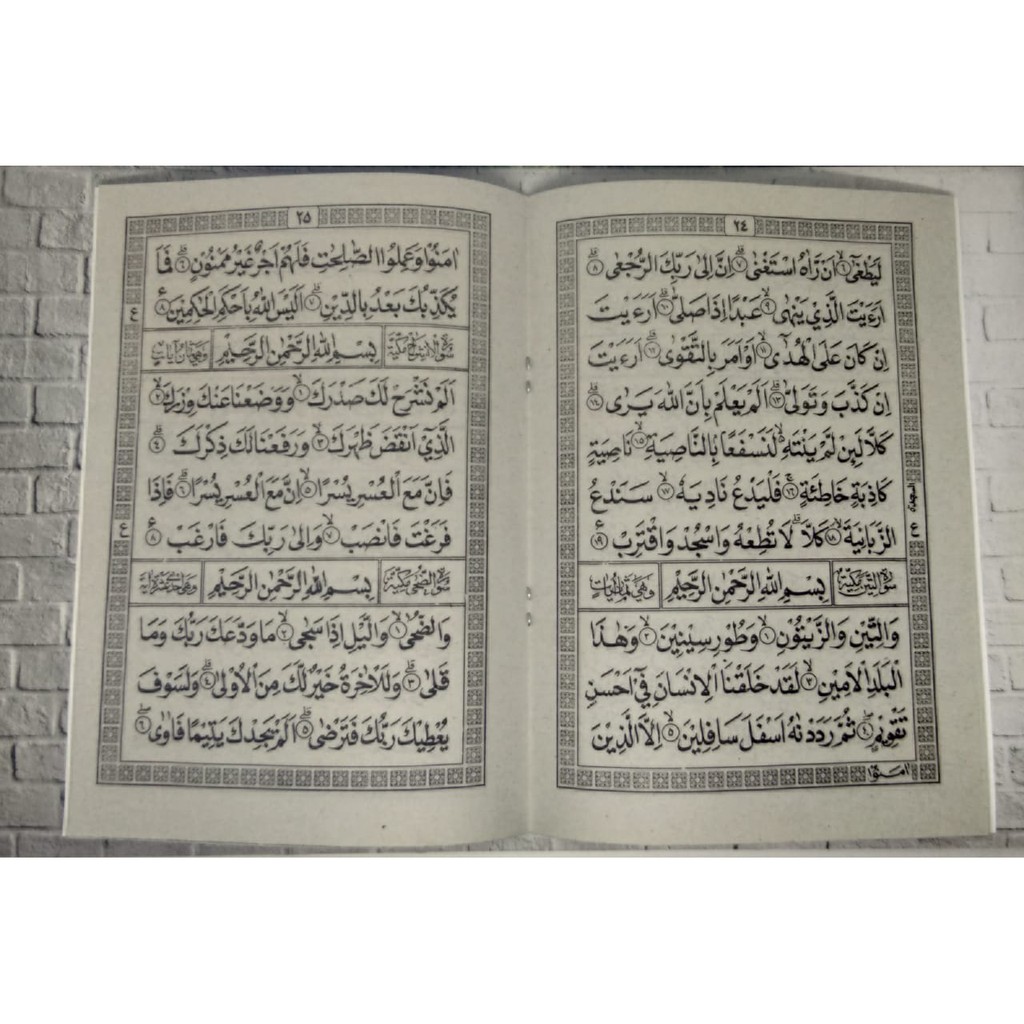 ٢٤
لَيَطْغٰىٓ ٦ اَنْ رَّاٰهُ اسْتَغْنٰى ٧ اِنَّ اِلٰى رَبِّكَ الرُّجْعٰى ٨
اَرَءَيْتَ الَّذِيْ يَنْهٰى ٩ عَبْدًا اِذَا صَلّٰى ١٠ اَرَءَيْتَ
اِنْ كَانَ عَلَى الْهُدٰٓى ١١ اَوْ اَمَرَ بِالتَّقْوٰى ١٢ اَرَءَيْتَ
اِنْ كَذَّبَ وَتَوَلّٰى ١٣ اَلَمْ يَعْلَمْ بِاَنَّ اللّٰهَ يَرٰى ١٤
كَلَّا لَئِنْ لَّمْ يَنْتَهِ لَنَسْفَعًا بِالنَّاصِيَةِ ١٥ نَاصِيَةٍ
كَاذِبَةٍ خَاطِئَةٍ ١٦ فَلْيَدْعُ نَادِيَهٗ ١٧ سَنَدْعُ
الزَّبَانِيَةَ ١٨ كَلَّا لَا تُطِعْهُ وَاسْجُدْ وَاقْتَرِبْ ١٩
سُوْرَةُ التِّيْنِ مَكِّيَّةٌ بِسْمِ اللّٰهِ الرَّحْمٰنِ الرَّحِيْمِ وَهِيَ ثَمَانُ اٰيَاتٍ
وَالتِّيْنِ وَالزَّيْتُوْنِ ١ وَطُوْرِ سِيْنِيْنَ ٢ وَهٰذَا
الْبَلَدِ الْاَمِيْنِ ٣ لَقَدْ خَلَقْنَا الْاِنْسَانَ فِيْٓ اَحْسَنِ
تَقْوِيْمٍ ٤ ثُمَّ رَدَدْنٰهُ اَسْفَلَ سَافِلِيْنَ ٥ اِلَّا الَّذِيْنَ
اٰمَنُوْا
السجدة
ع
٢٥
اٰمَنُوْا وَعَمِلُوا الصّٰلِحٰتِ فَلَهُمْ اَجْرٌ غَيْرُ مَمْنُوْنٍ ٦ فَمَا
يُكَذِّبُكَ بَعْدُ بِالدِّيْنِ ٧ اَلَيْسَ اللّٰهُ بِاَحْكَمِ الْحٰكِمِيْنَ ٨
بِسْمِ اللّٰهِ الرَّحْمٰنِ الرَّحِيْمِ وَهِيَ ثَمَانُ اٰيَاتٍ
اَلَمْ نَشْرَحْ لَكَ صَدْرَكَ ١ وَوَضَعْنَا عَنْكَ وِزْرَكَ ٢
الَّذِيْٓ اَنْقَضَ ظَهْرَكَ ٣ وَرَفَعْنَا لَكَ ذِكْرَكَ ٤
فَاِنَّ مَعَ الْعُسْرِ يُسْرًا ٥ اِنَّ مَعَ الْعُسْرِ يُسْرًا ٦ فَاِذَا
فَرَغْتَ فَانْصَبْ ٧ وَاِلٰى رَبِّكَ فَارْغَبْ ٨
سُوْرَةُ الضُّحٰى مَكِّيَّةٌ بِسْمِ اللّٰهِ الرَّحْمٰنِ الرَّحِيْمِ
وَالضُّحٰى ١ وَالَّيْلِ اِذَا سَجٰى ٢ مَا وَدَّعَكَ رَبُّكَ وَمَا
قَلٰى ٣ وَلَلْاٰخِرَةُ خَيْرٌ لَّكَ مِنَ الْاُوْلٰى ٤ وَلَسَوْفَ
يُعْطِيْكَ رَبُّكَ فَتَرْضٰى ٥ اَلَمْ يَجِدْكَ يَتِيْمًا فَاٰوٰى ٦
ع
ع